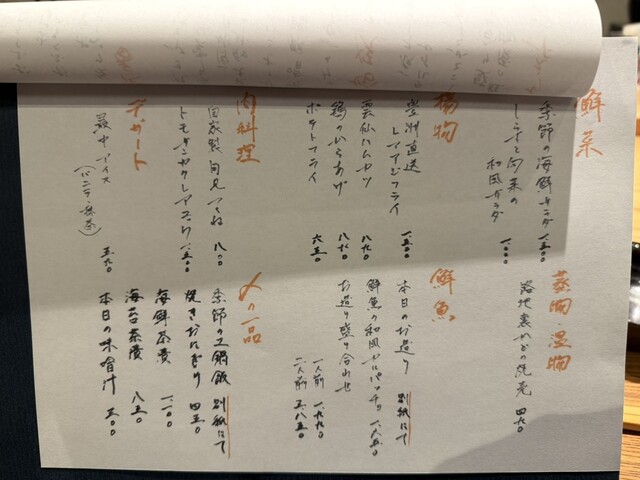 鮮菜
季節の海鮮サラダ 一、三〇〇
しらすと旬菜の
和風サラダ 一、〇〇〇
蒸物・温物
路地裏やどの焼売 四九〇
揚物
豊洲直送
レアアジフライ 一、三〇〇
雲仙ハムカツ 八九〇
鶏のからあげ 八九〇
ポテトフライ 六五〇
鮮魚
本日のお造り 別紙にて
鮮魚の和風カルパッチョ 一、六五〇
お造り盛り合わせ
一人前 一、九九〇
二人前 三、八五〇
肉料理
自家製月見つくね 八〇〇
トモサンカクレアステーキ
〆の一品
季節の土鍋飯 別紙にて
焼きおにぎり 四五〇
海鮮茶漬 一、一〇〇
海苔茶漬 八五〇
本日の味噌汁 三〇〇
デザート
最中アイス
(バニラ・抹茶) 五九〇